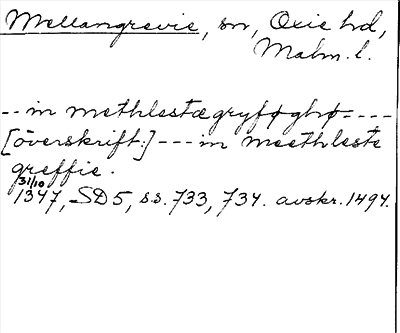 Mellangrevie, sn, Oxie hd,
Malm. l.
-- in methlestægryføghø ----
[överskrift:] --- in meethleste
greffie.
31/10
1347, SD5, ss. 733, 734. avskr. 1494.